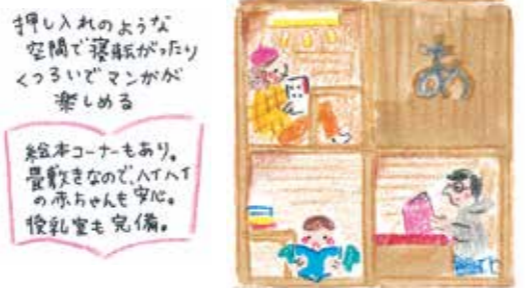 押し入れのような
空間で寝転がったり
くつろいでマンガが
楽しめる
絵本コーナーもあり。
畳敷きなので、ハイハイ
の赤ちゃんも安心。
授乳室も完備。
あ